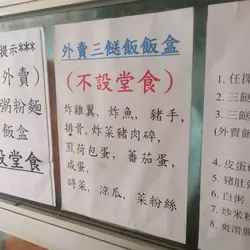 提示***
外賣)
粥粉麵
飯盒
設堂食
外賣三餸飯飯盒
(不設堂食)
炸雞翼, 炸魚, 豬手,
排骨, 炸菜豬肉碎,
煎荷包蛋, 蕃茄蛋,
咸蛋,
時菜, 涼瓜, 菜粉絲
1. 任揀
2. 三餸
3. 三餸
(外賣飯
4. 皮蛋
5. 豬肚
6. 白粥
7. 炒米
8. 爽滑